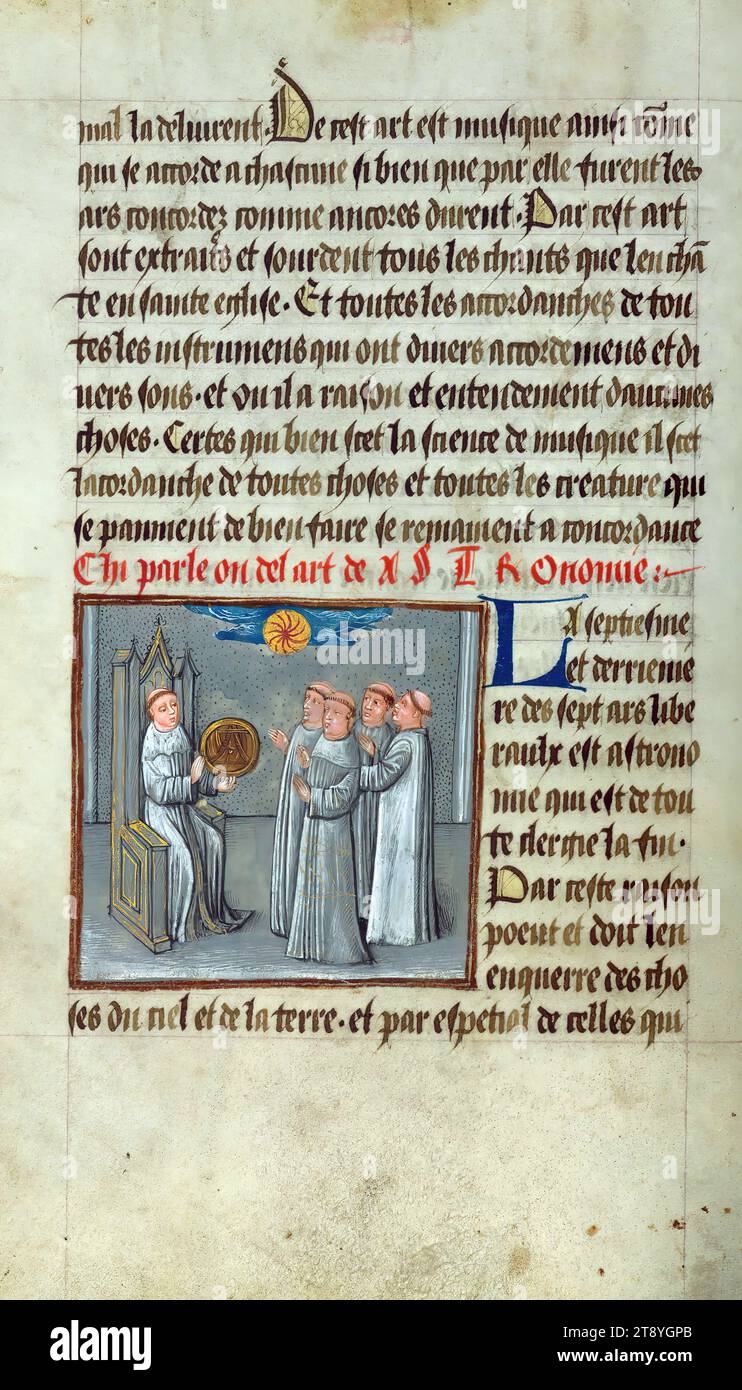 mal la deliurent. De cest art est musique ainsi cōme
qui se accorde a chascune si bien que par elle furent les
ars concordez comme ancores durent. Par cest art
sont extraits et sourdent tous les chants que len chā
te en sainte eglise. Et toutes les accordanches de tou
tes les instrumens qui ont diuers accordemens et di
uers sons. et ou il a raison et entendement daucunes
choses. Certes qui bien scet la science de musique il scet
lacordanche de toutes choses et toutes les creature qui
se painnent de bien faire se remainent a concordance
Chi parle on del art de ASTRonomie:
LA septiesme
et derreniere
re des sept ars libe
raulx est astrono
mie qui est de tou
te clergie la fin.
Par ceste raison
poeut et doit len
enquerre des cho
ses du ciel et de la terre. et par espetial de celles qui
alamy
Image ID: 2T8YGPB
www.alamy.com